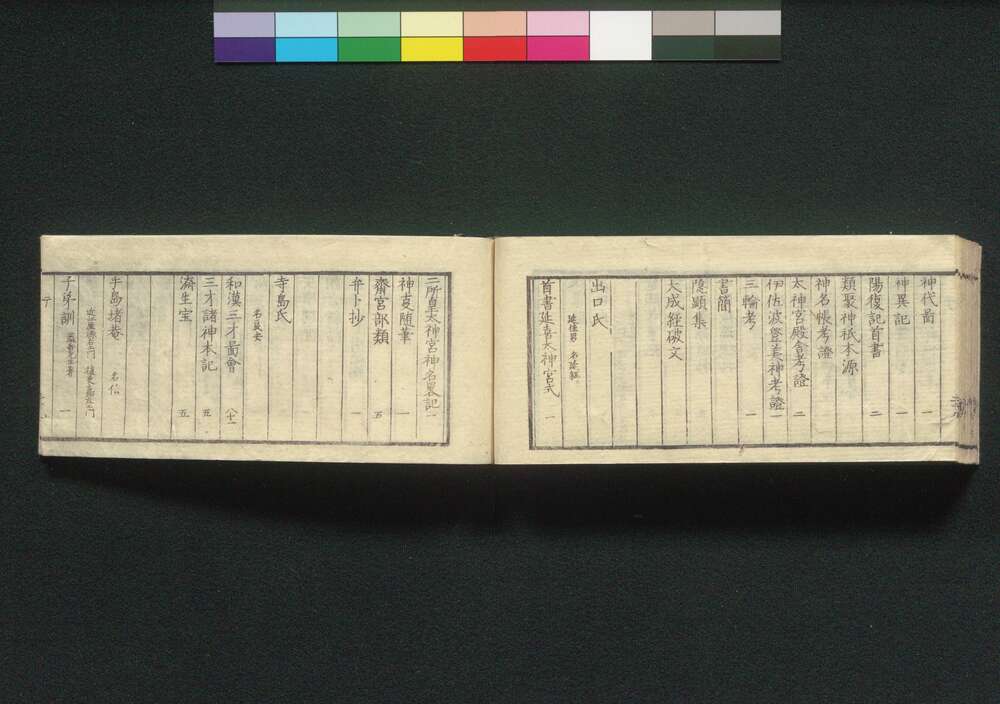 神代啚 一
神異記 一
陽復記首書 二
類聚神祇本源
神名帳考證
太神宮殿舎考證 二
伊佐波登美神考證 一
三輪考 一
書簡
隠顕集
大成経破文
出口氏
延佳男 名延経
首書延喜太神宮式 一
二所皇太神宮神名畧記 一
神㕝随筆 一
齋宮部類 五
弁卜抄 一
寺島氏
名良安
和漢三才啚會 八十一
三才諸神本記 五
濟生宝 五
手島堵菴 名信
近江屋源右エ門 後東郭嘉左エ門
子弟訓 一